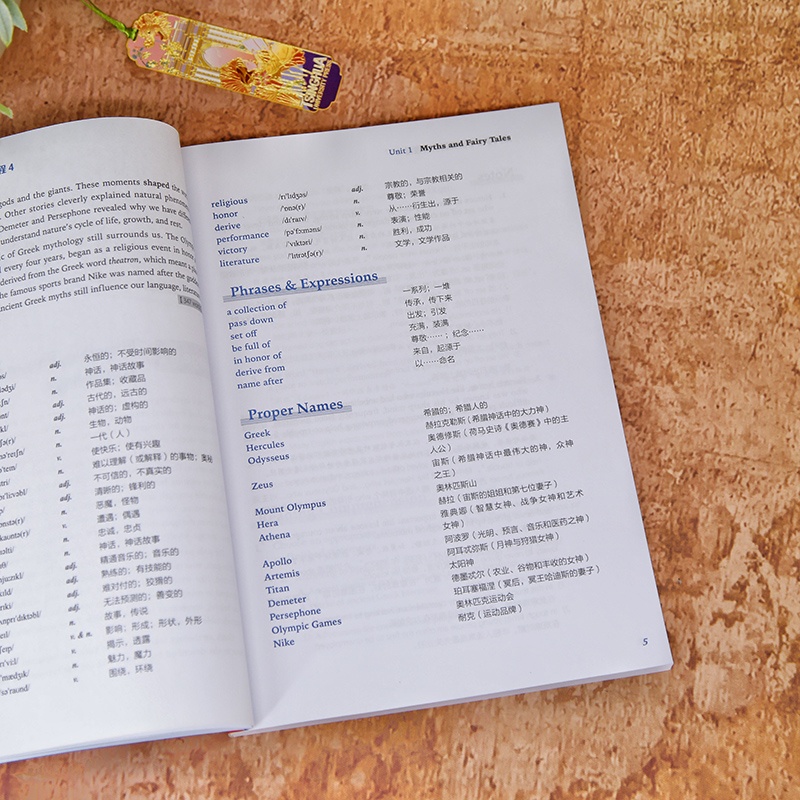 TSINGHUA
UNIVERSITY PRESS
程 4
gods and the giants. These moments shaped the
Other stories cleverly explained natural
Demeter and Persephone revealed why we have
understand nature's cycle of life, growth, and rest.
of Greek mythology still surrounds us. The
every four years, began as a religious event in
derived from the Greek word theatron, which meant a
famous sports brand Nike was named after the
ancient Greek myths still influence our language,
adj. 永恒的；不受时间影响的
n. 神话，神话故事
n. 作品集；收藏品
adj. 古代的，远古的
adj. 神话的；虚构的
n. 生物，动物
n. 一代（人）
v. 使快乐；使有兴趣
n. 难以理解（或解释）的事物；奥秘
adj. 不可信的，不真实的
adj. 清晰的；锋利的
n. 恶魔，怪物
v. 遭遇；偶遇
n. 忠诚，忠贞
n. 神话，神话故事
adj. 精通音乐的；音乐的
adj. 熟练的；有技能的
adj. 难对付的；狡猾的
adj. 无法预测的；善变的
n. 故事，传说
v. & n. 影响；形成；形状，外形
v. 揭示，透露
n. 魅力，魔力
v. 围绕，环绕
Unit 1 Myths and Fairy Tales
religious /rɪ'lɪdʒəs/ adj. 宗教的，与宗教相关的
honor /'ɒnə(r)/ n. 尊敬；荣誉
derive /dɪ'raɪv/ v. 从……衍生出，源于
performance /pə'fɔːməns/ n. 表演；性能
victory /'vɪktəri/ n. 胜利，成功
literature /'lɪtrətʃə(r)/ n. 文学，文学作品
Phrases & Expressions
a collection of 一系列；一堆
pass down 传承，传下来
set off 出发；引发
be full of 充满，装满
in honor of 尊敬……；纪念……
derive from 来自，起源于
name after 以……命名
Proper Names
Greek 希腊的；希腊人的
Hercules 赫拉克勒斯（希腊神话中的大力神）
Odysseus 奥德修斯（荷马史诗《奥德赛》中的主
人公）
Zeus 宙斯（希腊神话中最伟大的神，众神
之王）
Mount Olympus 奥林匹斯山
Hera 赫拉（宙斯的姐姐和第七位妻子）
Athena 雅典娜（智慧女神、战争女神和艺术
女神）
Apollo 阿波罗（光明、预言、音乐和医药之神）
Artemis 阿耳忒弥斯（月神与狩猎女神）
Titan 太阳神
Demeter 德墨忒尔（农业、谷物和丰收的女神）
Persephone 珀耳塞福涅（冥后，冥王哈迪斯的妻子）
Olympic Games 奥林匹克运动会
Nike 耐克（运动品牌）
5